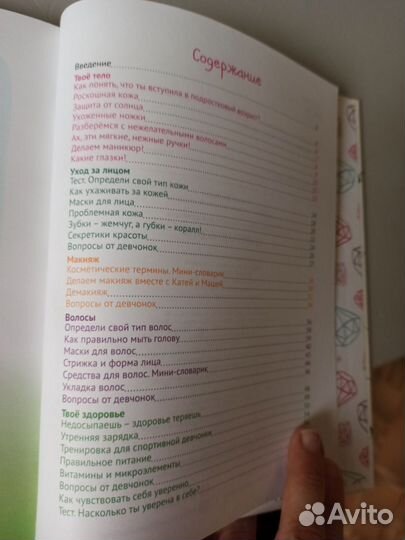 Содержание
Введение
Твоё тело
Как понять, что ты вступила в подростковый возраст?
Роскошная кожа
Защита от солнца
Ухоженные ножки
Разберёмся с нежелательными волосами
Ах, эти мягкие, нежные ручки!
Делаем маникюр!
Какие глазки!
Уход за лицом
Тест. Определи свой тип кожи
Как ухаживать за кожей
Маски для лица
Проблемная кожа
Зубки – жемчуг, а губки – коралл!
Секретики красоты
Вопросы от девчонок
Макияж
Косметические термины. Мини-словарик
Делаем макияж вместе с Катей и Машей
Демакияж
Вопросы от девчонок
Волосы
Определи свой тип волос
Как правильно мыть голову
Маски для волос
Стрижка и форма лица
Средства для волос. Мини-словарик
Укладка волос
Вопросы от девчонок
Твоё здоровье
Недосыпаешь – здоровье теряешь
Утренняя зарядка
Тренировка для спортивной девчонки
Правильное питание
Витамины и микроэлементы
Вопросы от девчонок
Как чувствовать себя уверенно
Тест. Насколько ты уверена в себе?
Avito